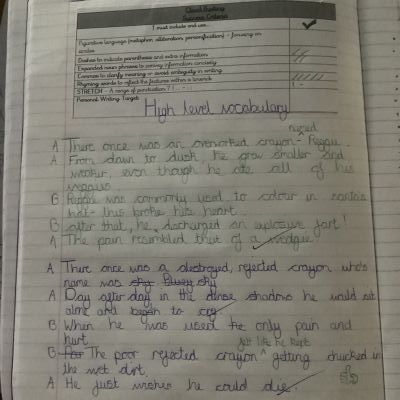 Cloud Busting
Success Criteria
I must include and use...
Figurative language (metaphor, alliteration, personification) - focusing on similes
Dashes to indicate parenthesis and extra information
Expanded noun phrases to convey information concisely
Commas to clarify meaning or avoid ambiguity in writing
Rhyming words to reflect the features within a limerick
STRETCH - A range of punctuation ? ! ...
Personal Writing Target:
High level vocabulary
named
A There once was an overworked crayon - Reggie.
A From dawn to dusk, he grew smaller and
weaker, even though he ate all of his
veggies
B Reggie was commonly used to colour in santa's
hat - this broke his heart.
B after that, he discharged an explosive fart!
A The pain resembled that of a wedgie.
A There once was a destroyed, rejected crayon who's
name was sky
A Day after day in the dense shadows he would sit
alone and began to cry
B When he was used he only pain and
hurt
felt like he kept
B The poor rejected crayon getting chucked in
the wet dirt.
A He just wishes he could die.